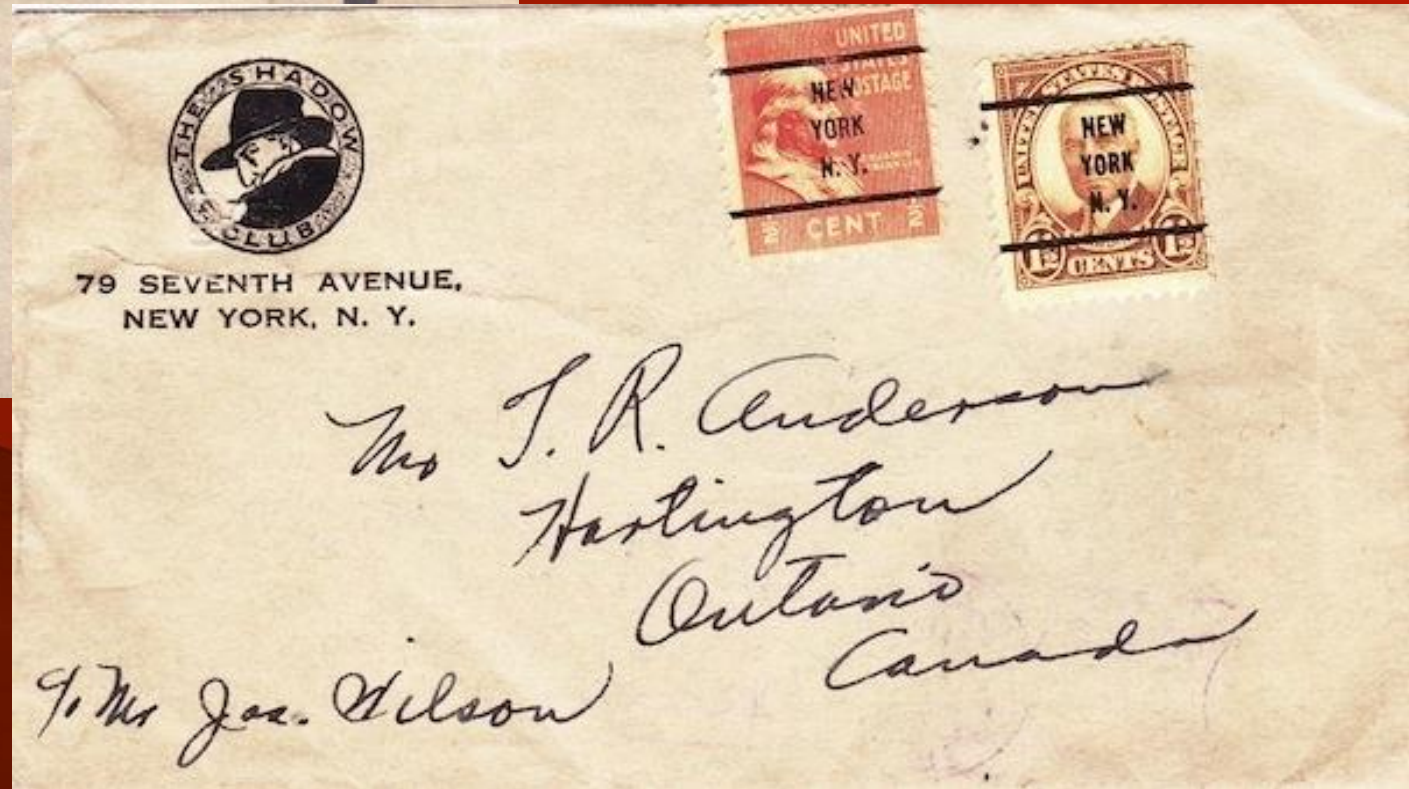 THE SHADOW
CLUB
79 SEVENTH AVENUE,
NEW YORK, N. Y.
UNITED
STATES
POSTAGE
NEW
YORK
N. Y.
½ CENT ½
UNITED STATES POSTAGE
NEW
YORK
N. Y.
1½ CENTS 1½
Mr T. R. Anderson
Hartington
Ontario
Canada
c/o Mr Jas. Wilson